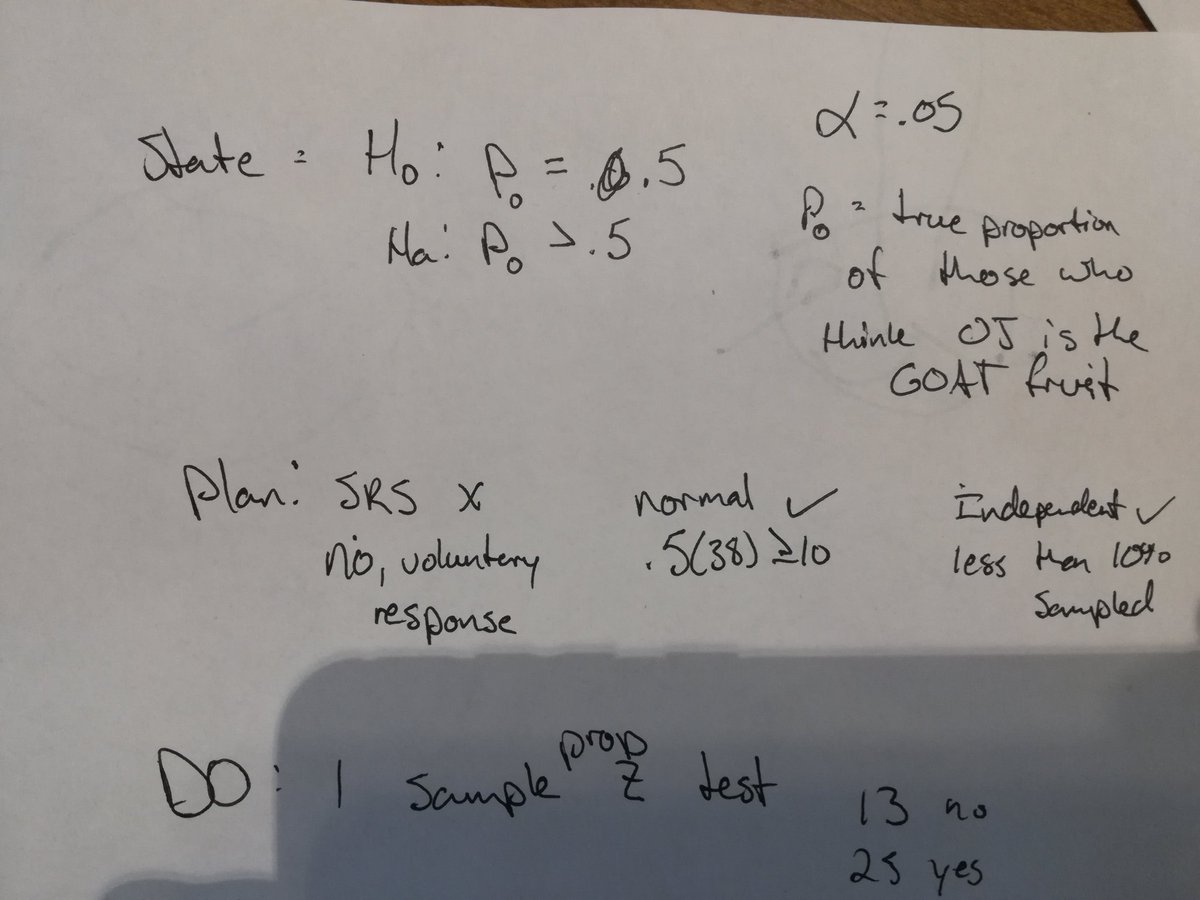 α = .05
State = H₀: P₀ = .5
Ha: P₀ > .5
P₀ = true proportion
of those who
think OJ is the
GOAT fruit
Plan: SRS x
no, voluntery
response
normal ✓
.5(38) ≥10
Independent ✓
less then 10%
Sampled
DO: 1 Sample prop Z test
13 no
25 yes